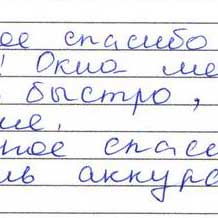 ое спасибо
! Окна ме
быстро,
ие.
ное спас
ль аккур